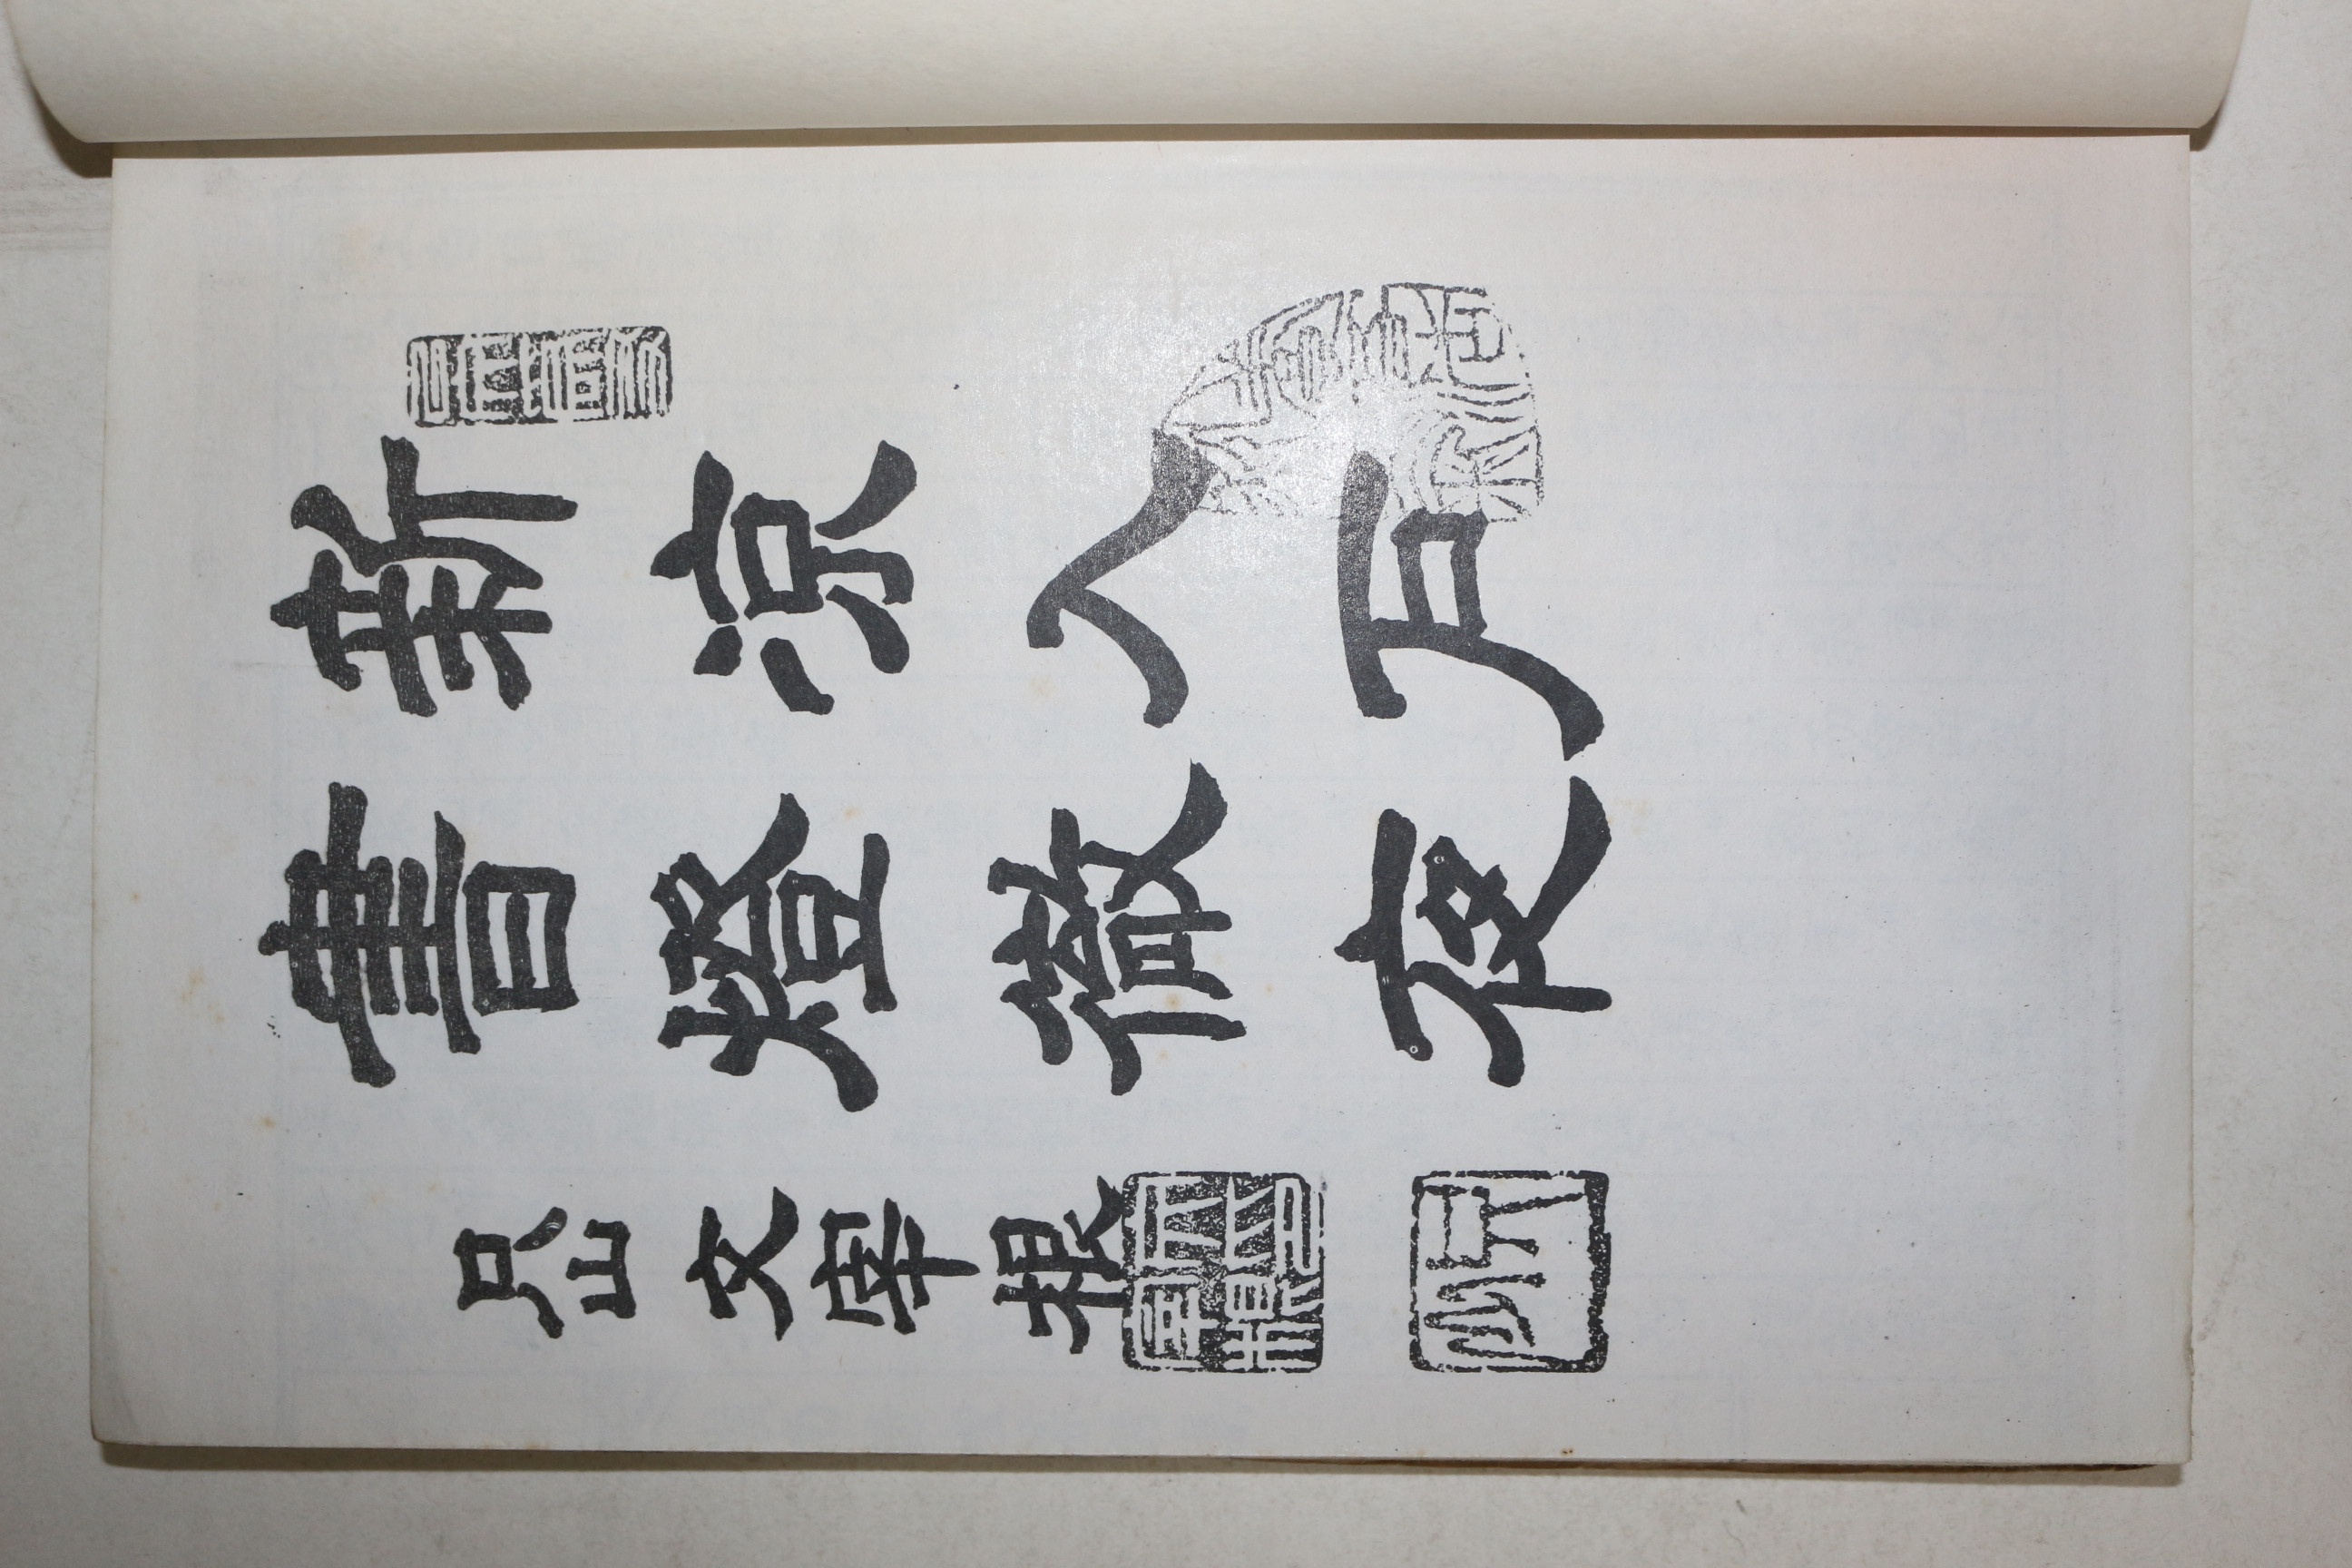 新凉入戶
書燈徹夜
只山 文宰根
文印宰根
只山